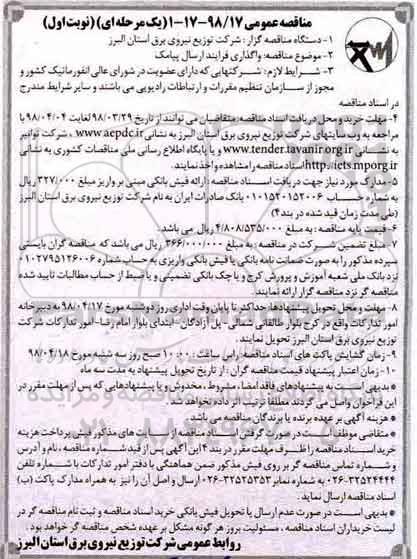 مناقصه عمومی ۹۸/۱۷-۱۷-۱ (یک مرحله ای) (نوبت اول)
۱- دستگاه مناقصه گزار: شرکت توزیع نیروی برق استان البرز
۲- موضوع مناقصه: واگذاری فرایند ارسال پیامک
۳- شرایط لازم: شرکتهایی که دارای عضویت در شورای عالی انفورماتیک کشور و
مجوز از سازمان تنظیم مقررات و ارتباطات رادیویی می باشند و سایر شرایط مندرج
در اسناد مناقصه
۴- مهلت خرید و محل دریافت اسناد مناقصه: متقاضیان می توانند از تاریخ ۹۸/۰۳/۲۹ لغایت ۹۸/۰۴/۰۴ با
مراجعه به وب سایتهای شرکت توزیع نیروی برق استان البرز به نشانی www.aepdc.ir ، شرکت توانیر
به نشانی www.tender.tavanir.org.ir و یا پایگاه اطلاع رسانی ملی مناقصات کشوری به نشانی
http://iets.mporg.ir اسناد مناقصه را مشاهده واخذ نمایند.
۵- مدارک مورد نیاز جهت دریافت اسناد مناقصه: ارائه فیش بانکی مبنی بر واریز مبلغ ۳۲۷/۰۰۰ ریال
به شماره حساب ۰۱۰۱۵۲۰۱۵۲۰۰۶ بانک صادرات ایران به نام شرکت توزیع نیروی برق استان البرز
(طی مدت زمان قید شده در بند۴)
۶- قیمت پایه مناقصه: به مبلغ ۴/۸۰۸/۵۳۵/۰۰۰ ریال می باشد.
۷- مبلغ تضمین شرکت در مناقصه: به مبلغ ۳۶۶/۰۰۰/۰۰۰ ریال می باشد که مناقصه گران بایستی
سپرده مذکور را به صورت ضمانت نامه بانکی یا فیش بانکی واریزی به حساب شماره ۰۱۰۲۷۹۵۱۲۶۰۰۶
نزد بانک ملی شعبه آموزش و پرورش کرج و یا چک بانکی تضمینی و یا ضبط از حساب مطالبات تایید شده
مناقصه گر نزد مناقصه گزار ارائه نمایند.
۸- مهلت و محل تحویل پیشنهادها: حداکثر تا پایان وقت اداری روز دوشنبه مورخ ۹۸/۰۴/۱۷ به دبیرخانه
امور تدارکات واقع در کرج بلوار طالقانی شمالی- پل آزادگان- ابتدای بلوار امام رضا- امور تدارکات شرکت
توزیع نیروی برق استان البرز تحویل نمایند.
۹- زمان گشایش پاکت های اسناد مناقصه: راس ساعت ۱۰:۰۰ صبح روز سه شنبه مورخ ۹۸/۰۴/۱۸
۱۰- زمان اعتبار پیشنهاد قیمت مناقصه گران: از تاریخ تحویل پیشنهاد به مدت سه ماه
* بدیهی است به پیشنهادهای فاقد امضا، مشروط، مخدوش و یا پیشنهادهایی که پس از مهلت مقرر در
این فراخوان واصل می گردند مطلقا ترتیب اثر داده نخواهد شد.
* هزینه آگهی بر عهده برنده یا برندگان مناقصه می باشد.
* متقاضی موظف است در صورت گرفتن اسناد مناقصه از سایت های مذکور فیش پرداخت هزینه
خرید اسناد مناقصه را ظرف مهلت مقرر در بند ۴ این آگهی پس از قید شماره مناقصه، نام و آدرس
و شماره تماس مناقصه گر بر روی فیش مذکور ضمن هماهنگی با دفتر امور تدارکات با شماره تلفن
۰۲۶-۳۲۵۲۴۴۴۴ به شماره نمابر ۰۲۶-۳۲۵۲۵۳۵۳ ارسال و اصل آن را نیز به همراه مدارک پاکت (ب)
اسناد مناقصه ارسال نماید.
* بدیهی است در صورت عدم ارسال یا تحویل فیش بانکی خرید اسناد مناقصه و ثبت نام مناقصه گر در
لیست خریداران اسناد مناقصه، مسئولیت بروز هر گونه مشکل بر عهده شخص مناقصه گر خواهد بود.
روابط عمومی شرکت توزیع نیروی برق استان البرز